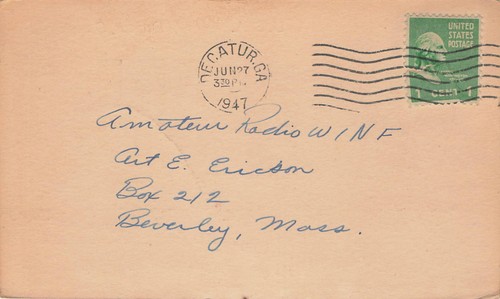 DECATUR, GA.
JUN 27
3 30 P
1947
UNITED
STATES
POSTAGE
1 CENT 1
Amateur Radio W1NF
Art E. Erickson
Box 212
Beverley, Mass.